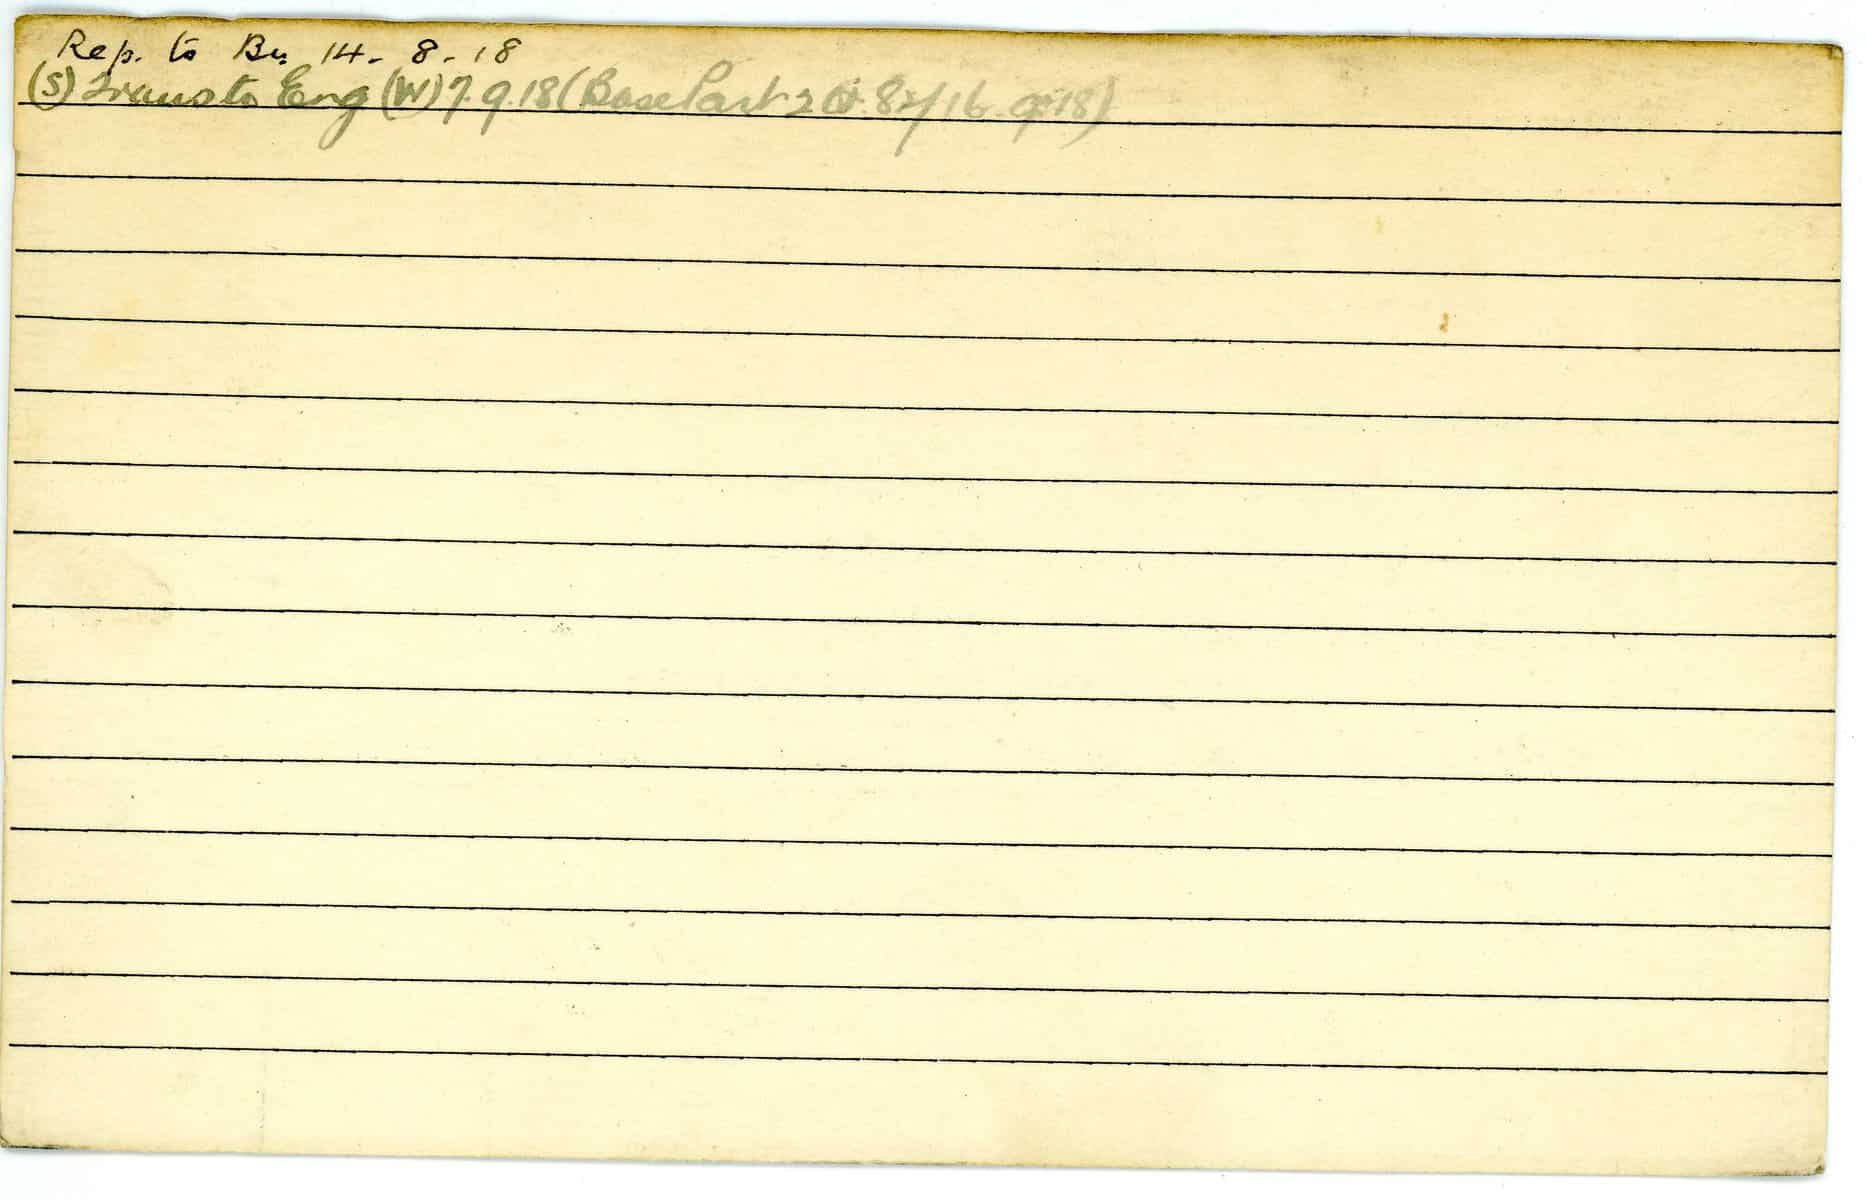 Rep. to Bn 14-8-18
(S) Trans to Eng (W) 7.9.18 (Base Part 2 O. 82/16.9.18)